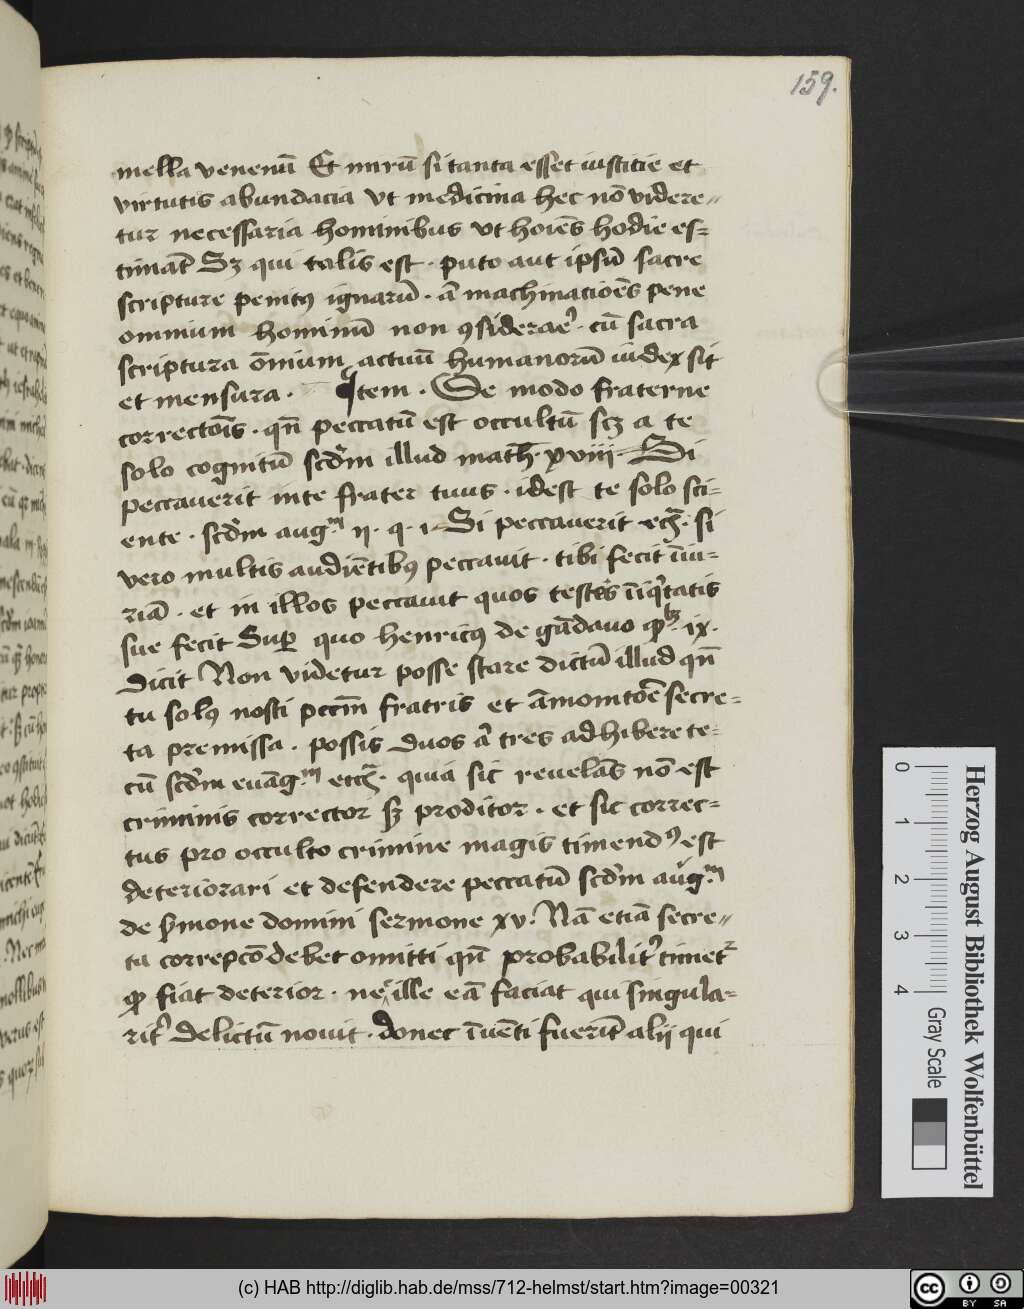 159.
mella venenū Et mirū si tanta esset iusticie et
virtutis abundacia vt medicina hec nō videre⸗
tur necessaria hominibus vt hoiēs hodie es⸗
timāt Sꝫ qui talis est · puto aut ipsū sacre
scripture penitꝰ ignarū · a᷑ machinacioēs pene
omnium hominū non ꝯsiderae᷑ · cū sacra
scriptura ōmium actuū humanorū iudex sit
et mensura · Item · De modo fraterne
correctōis · qn̄ peccatū est occultū scꝫ a te
solo cognitū scd̓m illud math̄ · xviii · Si
peccauerit inte frater tuus · idest te solo sci⸗
ente · scd̓m aug.m ii · q · 1 · Si peccauerit etc̄ · si
vero multis audiētibꝰ peccauit · tibi fecit īiu⸗
riā · et in illos peccauit quos testes īiq̓tatis
sue fecit Suꝑ quo henricꝰ de gādauo ix ·
Dicit Non videtur posse stare dictū illud qn̄
tu solꝰ nosti pccm̄ fratris et āmonitōe secre⸗
ta premissa · possis duos a᷑ tres adhibere te⸗
cū scd̓m euāg.m etc̄ · quia sic reuelās nō est
criminis corrector sꝫ proditor · et sic correc⸗
tus pro occulto crimine magis timendꝰ est
deteriorari et defendere peccatū scd̓m aug.m
de s̓mone domini sermone xv · Nā etiā secre⸗
ta correpcō debet omitti qn̄ probabilit᷑ timet᷑
ꝙ fiat deterior · ne ille eā faciat qui singula⸗
rit᷑ delictū nouit · donec īuēti fuerīt alij qui
Herzog August Bibliothek Wolfenbüttel
0 1 2 3 4
Gray Scale
(c) HAB http://diglib.hab.de/mss/712-helmst/start.htm?image=00321
cc BY SA